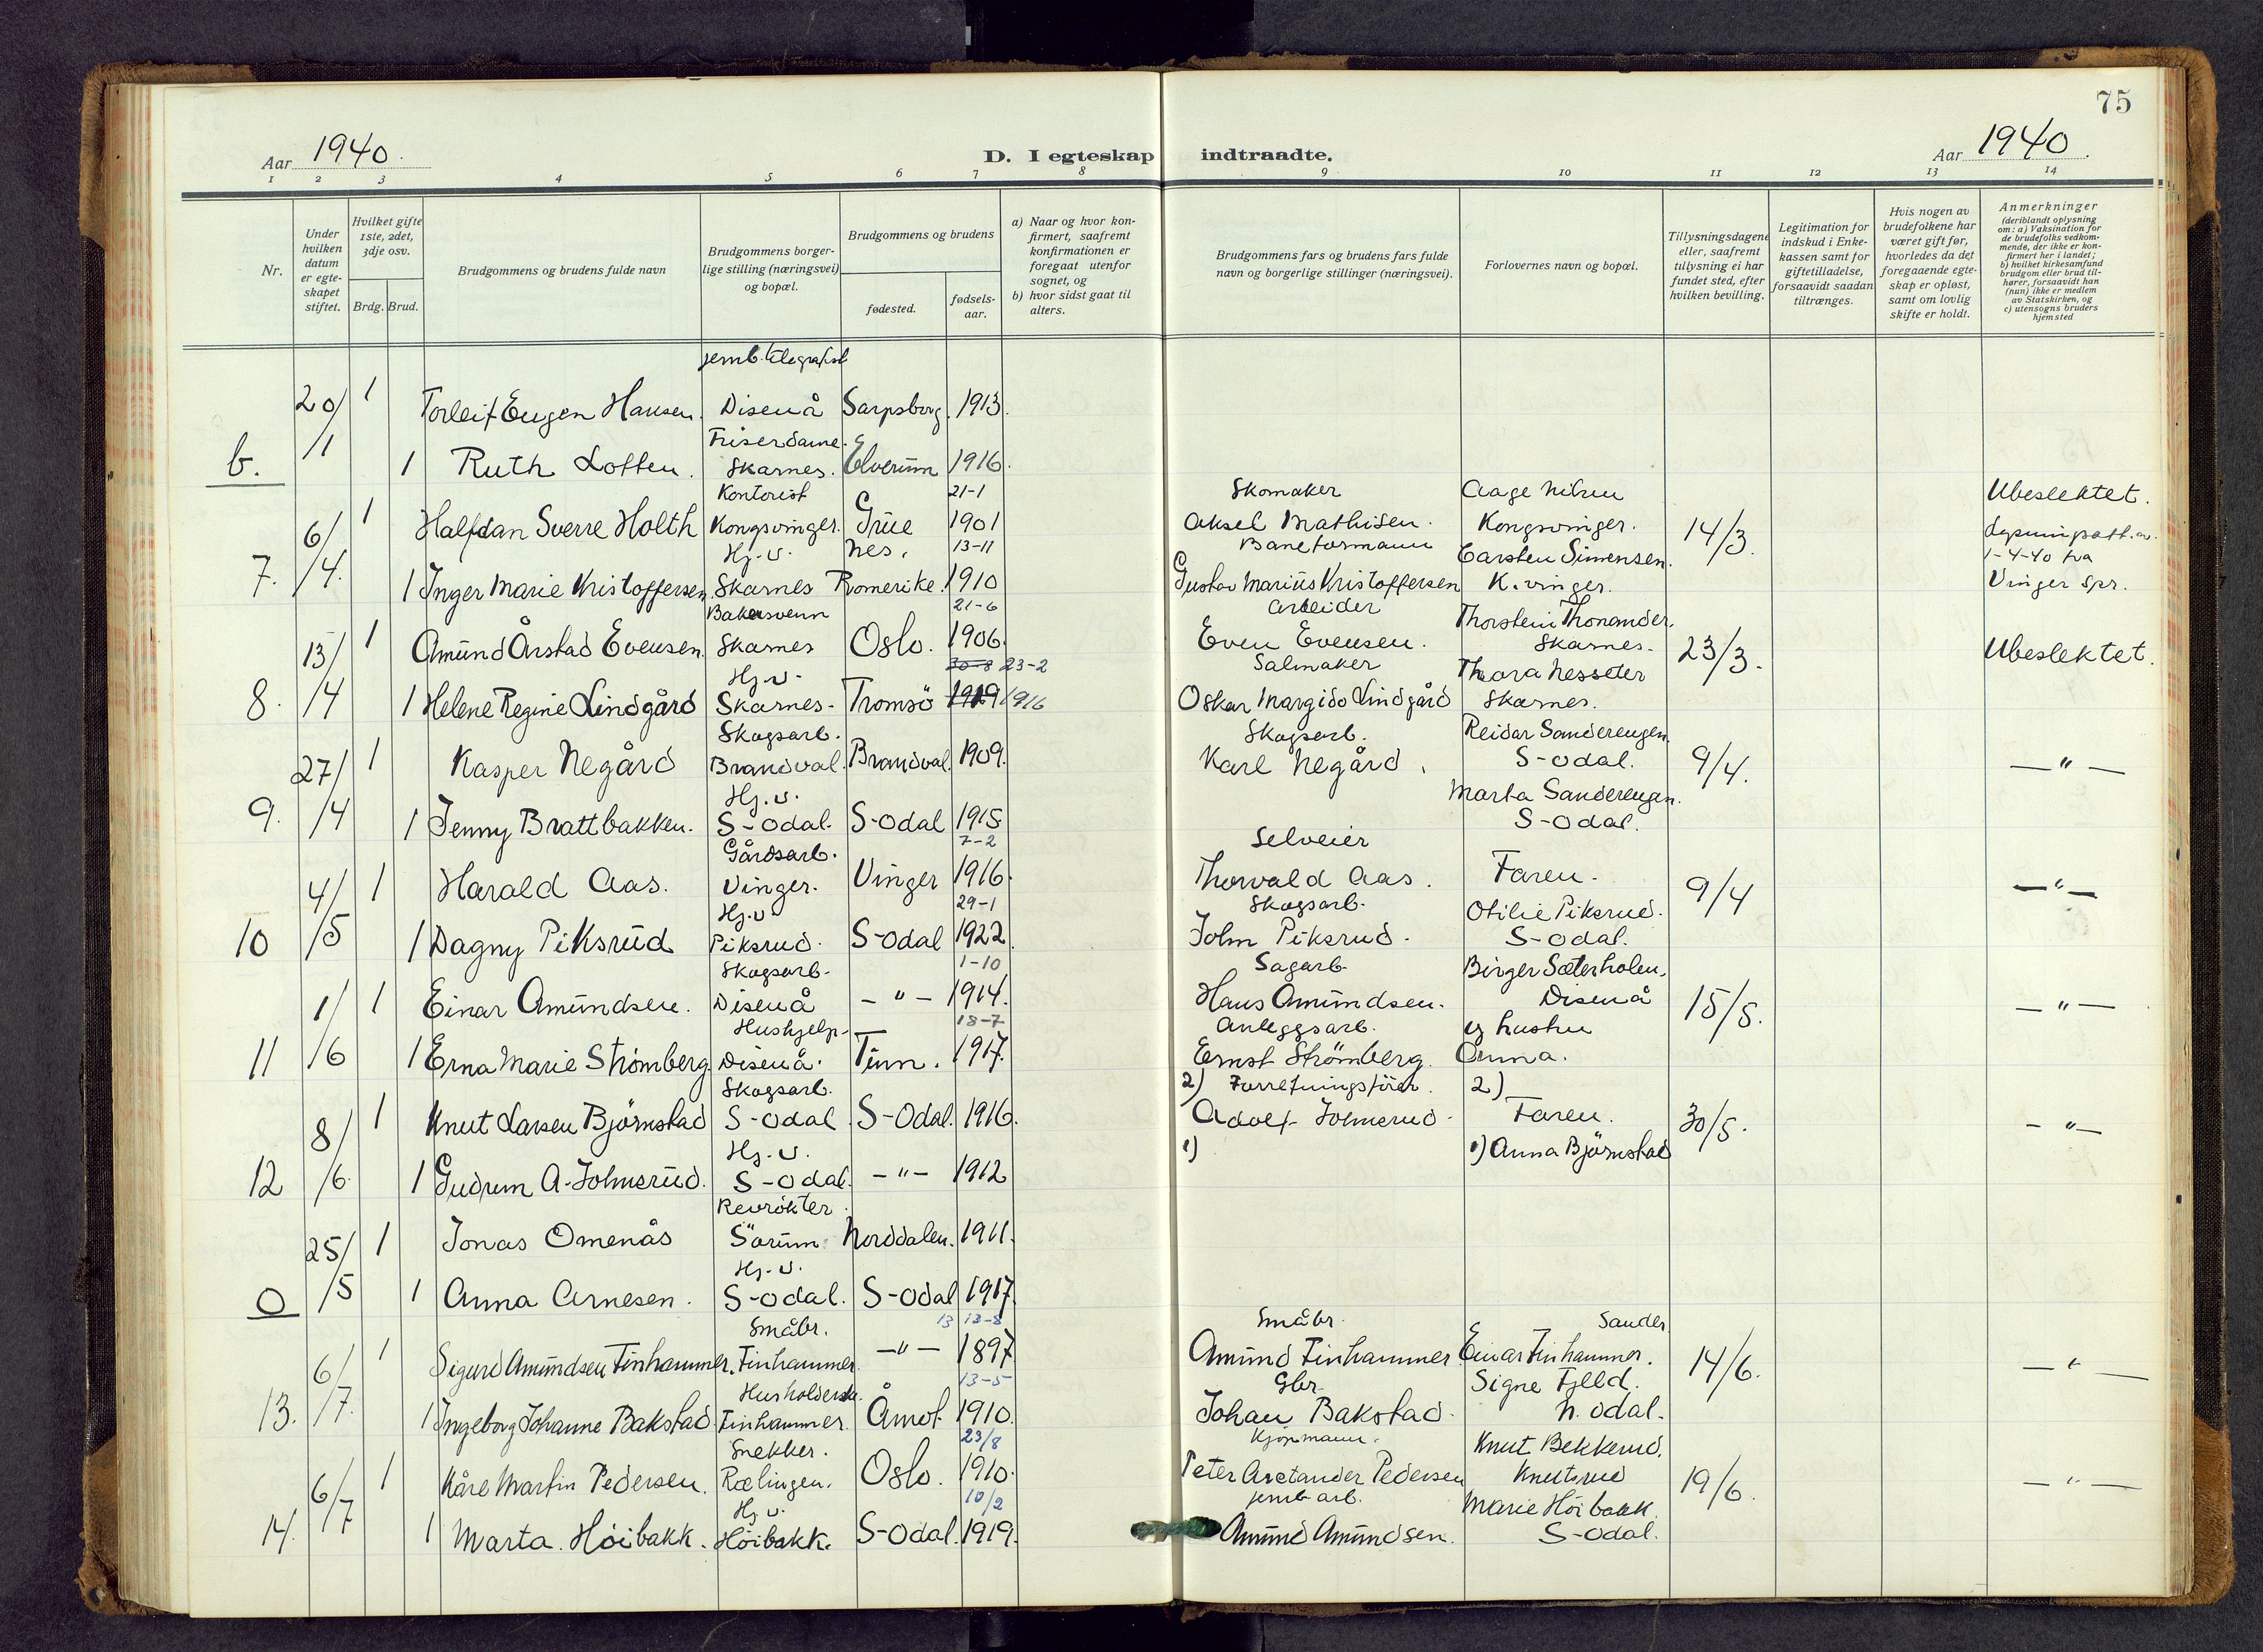 75
Aar 1940.
D. I egteskap indtraadte.
Aar 1940.
1 2 3 4 5 6 7 8 9 10 11 12 13 14
Nr.
Under hvilken datum er egte-skapet stiftet.
Hvilket gifte 1ste, 2det, 3dje osv.
Brdg. Brud.
Brudgommens og brudens fulde navn
Brudgommens borger-lige stilling (næringsvei) og bopæl.
Brudgommens og brudens
fødested.
fødsels-aar.
a) Naar og hvor kon-firmert, saafremt konfirmationen er foregaat utenfor sognet, og
b) hvor sidst gaat til alters.
Brudgommens fars og brudens fars fulde navn og borgerlige stillinger (næringsvei).
Forlovernes navn og bopæl.
Tillysningsdagene eller, saafremt tillysning ei har fundet sted, efter hvilken bevilling.
Legitimation for indskud i Enke-kassen samt for giftetilladelse, forsaavidt saadan tiltrænges.
Hvis nogen av brudefolkene har været gift før, hvorledes da det foregaaende egte-skap er opløst, samt om lovlig skifte er holdt.
Anmerkninger (deriblandt oplysning om: a) Vaksination for de brudefolks vedkom-mende, der ikke er kon-firmert her i landet; b) hvilket kirkesamfund brudgom eller brud til-hører, forsaavidt han (nun) ikke er medlem av Statskirken, og c) utensogns bruders hjemsted
jernb.telegrafist
20/ 1 Torleif Eugen Hansen. Disenå Sarpsborg. 1913.
Friserdame.
b. /1 1 Ruth Lotten. Skarnes. Elverum 1916.
Kontorist 21-1 Skomaker Aage Nilsen Ubeslektet.
6/ 1 Halfdan Sverre Holth Kongsvinger. Grue 1901 Aksel Mathisen. Kongsvinger. 14/3.
Hj.v. Nes, 13-11 Baneformann Carsten Simensen. 1-4-40 fra
7. /4. 1 Inger Marie Kristoffersen Skarnes Romerike. 1910 Gustav Marius Kristoffersen K.vinger. Vinger spr.
Bakersvenn 21-6 Arbeider Thorstein Thonander.
13/ 1 Amund Årstad Evensen. Skarnes Oslo. 1906. Even Evensen. Skarnes. 23/3. Ubeslektet.
Hj-v- 30-8 23-2 Salmaker Thora Nesseter
8. /4 1 Helene Regine Lindgård Skarnes- Tromsö 1919 1916 Oskar Margido Lindgård Skarnes.
Skogsarb. Skogsarb. Reidar Sanderengen.
27/ 1 Kasper Negård Brandval. Brandval. 1909. Karl Negård. S-Odal. 9/4. —"—
Hj.v. Marta Sanderengen.
9. /4 1 Jenny Brattbakken. S-Odal. S-Odal 1915 S-Odal.
Gårdsarb. 7-2 Selveier
4/ 1 Harald Aas. Vinger. Vinger 1916. Thorvald Aas. Faren. 9/4 —"—
Hj.v 29-1 Skogsarb. Otilie Piksrud.
10 /5 1 Dagny Piksrud Piksrud. S-Odal 1922. John Piksrud. S-Odal.
Skogsarb- 1-10 Sagarb. Birger Sæterholen.
1/ 1 Einar Amundsen. Disenå —"— 1914. Hans Amundsen. Disenå 15/5. —"—
Hushjelp- 18-7 Anleggsarb. og hustru
11 /6 1 Erna Marie Strömberg. Disenå. Tinn. 1917. Ernst Strömberg. Anna.
Skogsarb. 2) Forretningsförer. 2)
8/ 1 Knut Larsen Björnstad S-Odal S-Odal. 1916. Adolf Johnsrud. Faren. 30/5. —"—
Hj.v. 1) 1) Anna Björnstad
12 /6 1 Gudrun A-Johnsrud. S-Odal. —"— 1912
Revrökter.
25/ 1 Jonas Omenås Sörum Norddalen. 1911.
Hj.v.
0 /5 1 Anna Arnesen. S-Odal. S-Odal 1917.
Småbr. 13 13-8 Småbr. Sander
6/ 1 Sigurd Amundsen Finhammer. Finhammer. —"— 1897 Amund Finhammer. Einar Finhammer. 14/6. —"—
Husholderske. 13-5 Gbr. Signe Fjeld.
13. /7. 1 Ingeborg Johanne Bakstad. Finhammer. Åmot 1910. Johan Bakstad. N. Odal.
Snekker. 23/8 Kjöpmann. Knut Bekkerud.
6/ 1 Kåre Martin Pedersen. Rælingen. Oslo. 1910. Peter Aretander Pedersen Knutsrud 19/6. —"—
Hj.v. 10/2 jernb.arb. Marie Höibakk.
14. /7 1 Marta Höibakk. Höibakk. S-Odal. 1919. Amund Amundsen. S-Odal.